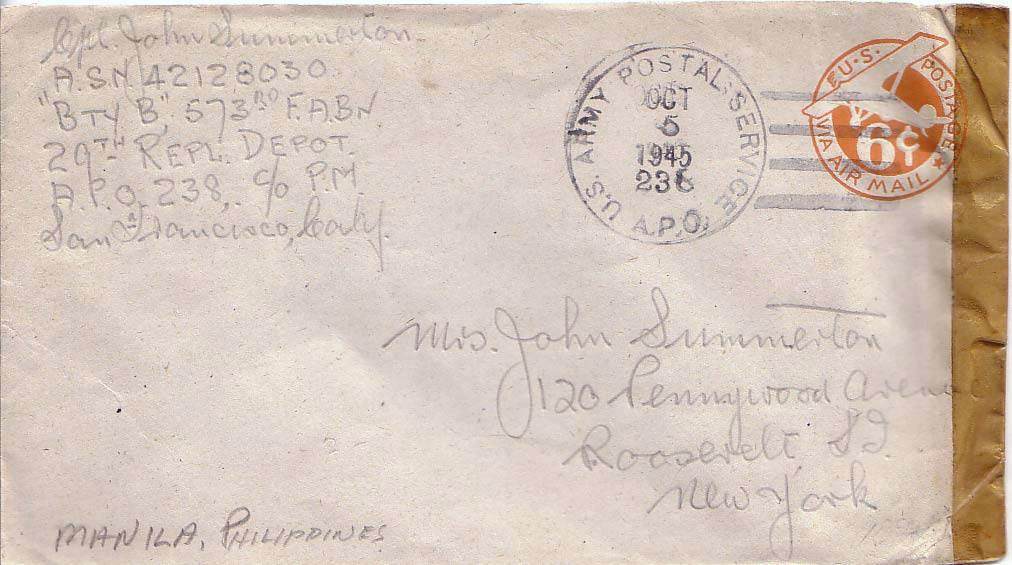 Cpl. John Summerton
A.S.N. 42128030
"BTY B", 573RD F.A.BN
29TH REPL. DEPOT.
A.P.O. 238, c/o P.M.
San Francisco, Calif.
U.S. ARMY POSTAL SERVICE
OCT
5
1945
238
A.P.O.
U.S. POSTAGE
6¢
VIA AIR MAIL
Mrs. John Summerton
120 Pennywood Avenue
Roosevelt, L.I.
New York
MANILA, PHILIPPINES